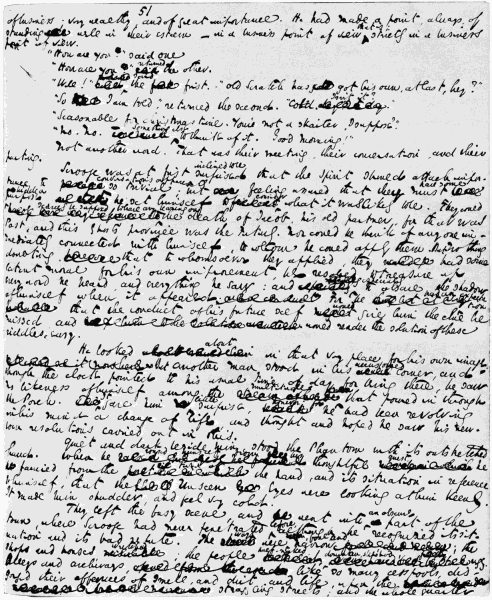 51
of business: very wealthy, and of great importance. He had made a point, always, of
standing well in their esteem – in a business point of view, that is, strictly in a business
point of view.
"How are you?" said one.
"How are you?" returned the other.
"Well!" said the first. "Old Scratch has got his own, at last, hey?"
"So I am told," returned the second. "Cold, isn't it?"
"Seasonable for Christmas time. You're not a skaiter, I suppose?"
"No. No. Something else to think of. Good morning!"
Not another word. That was their meeting, their conversation, and their
parting.
Scrooge was at first inclined to be surprised that the Spirit should attach impor-
tance to conversations apparently so trivial; but feeling assured that they must have some
hidden purpose, he set himself to consider what it was likely to be. They could
scarcely be supposed to have any bearing on the death of Jacob, his old partner, for that was
Past, and this Ghost's province was the Future. Nor could he think of any one im-
mediately connected with himself, to whom he could apply them. But nothing
doubting that to whomsoever they applied they had some
latent moral for his own improvement, he resolved to treasure up
every word he heard, and everything he saw; and especially to observe the shadow
of himself when it appeared. For he had an expectation
that the conduct of his future self would give him the clue he
missed, and would render the solution of these
riddles easy.
He looked about in that very place for his own image;
but another man stood in his accustomed corner, and
though the clock pointed to his usual time of day for being there, he saw
no likeness of himself among the multitudes that poured in through
the Porch. It gave him little surprise, however; for he had been revolving
in his mind a change of life, and thought and hoped he saw his new-
born resolutions carried out in this.
Quiet and dark, beside him, stood the Phantom, with its outstretched
hand. When he roused himself from his thoughtful quest,
he fancied from the turn of the hand, and its situation in reference
to himself, that the Unseen Eyes were looking at him keenly.
It made him shudder, and feel very cold.
They left the busy scene, and went into an obscure part of the
town, where Scrooge had never penetrated before, although he recognised its sit-
uation and its bad repute. The ways were foul and narrow; the
shops and houses wretched; the people half-naked, drunken, slipshod, ugly.
Alleys and archways, like so many cesspools, dis-
gorged their offences of smell, and dirt, and life, upon the
straggling streets; and the whole quarter